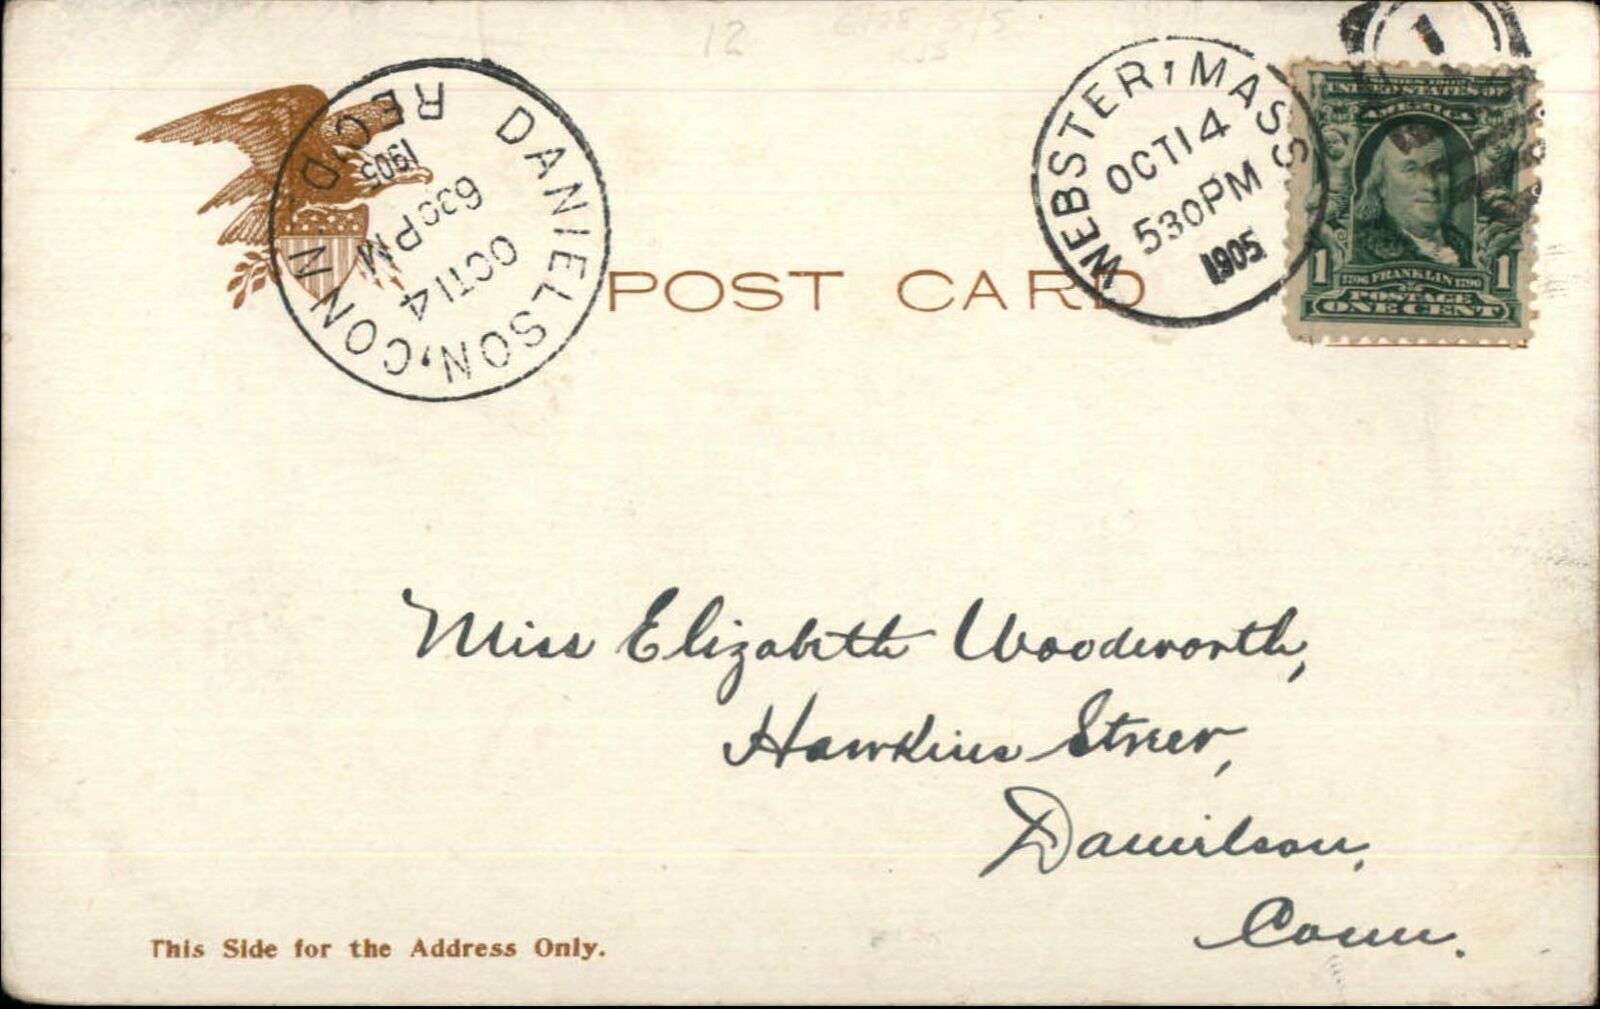 12
DANIELSON, CONN
REC'D
OCT 14
630 PM
1905
WEBSTER, MASS
OCT 14
530 PM
1905
1
UNITED STATES OF
AMERICA
1 1706 FRANKLIN 1790 1
POSTAGE
ONE CENT
POST CARD
Miss Elizabeth Woodworth,
Hawkins Street,
Danielson,
Conn.
This Side for the Address Only.